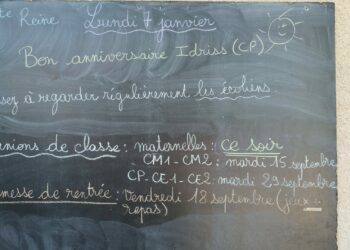 te Reine Lundi 7 janvier
Bon anniversaire Idriss (CP)
sez à regarder régulièrement les écoliens.
nions de classe : maternelles : ce soir
CM1 - CM2 : mardi 15 septembre
CP - CE1 - CE2 : mardi 29 septembre
messe de rentrée : Vendredi 18 septembre (jeux +
repas)